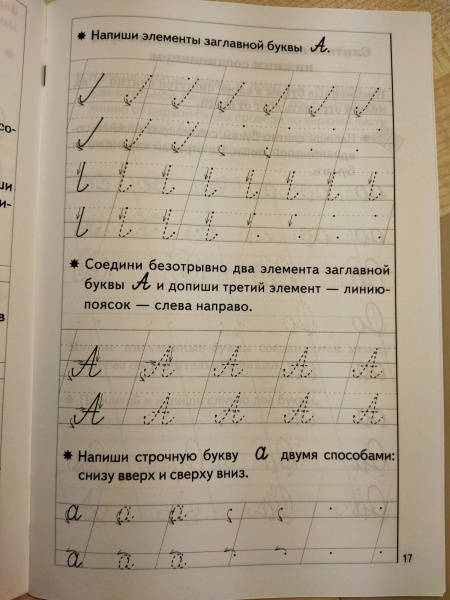 ✷ Напиши элементы заглавной буквы А.
✷ Соедини безотрывно два элемента заглавной
буквы А и допиши третий элемент — линию-
поясок — слева направо.
А А А А А А
А А А А А А
✷ Напиши строчную букву а двумя способами:
снизу вверх и сверху вниз.
а а а
а а а
17
со-
ши
и-
в